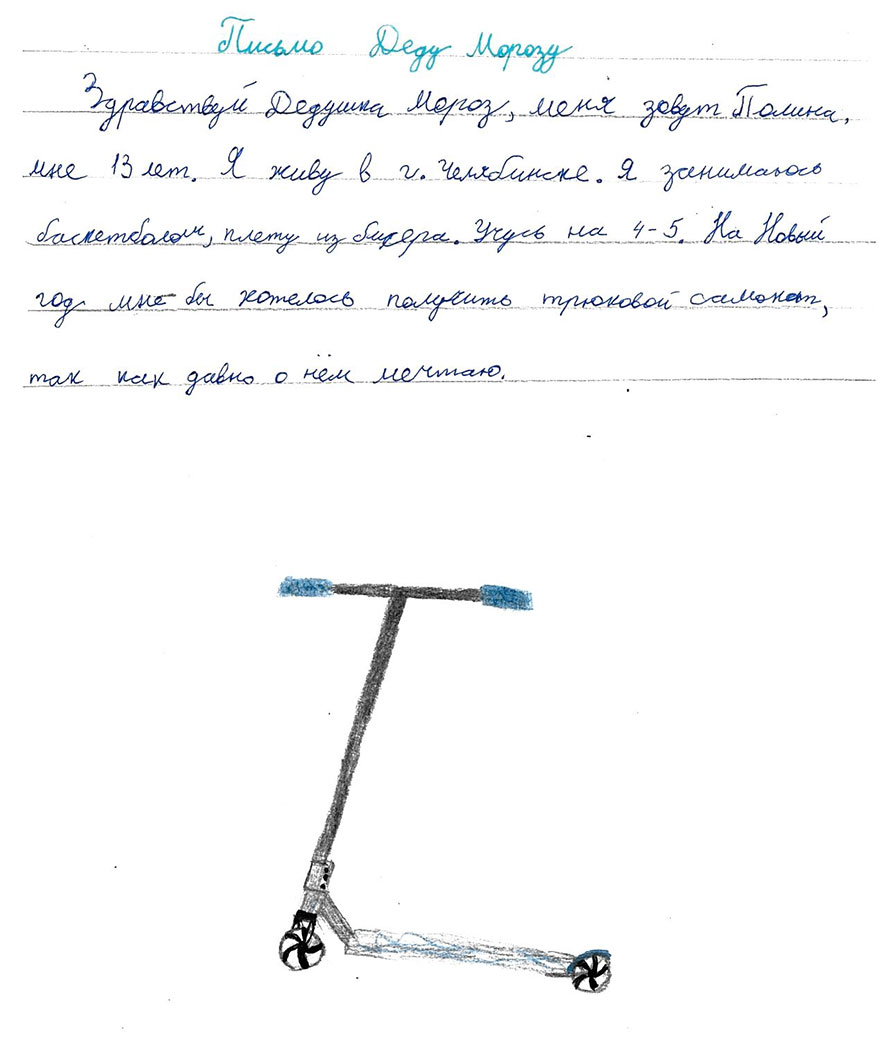 Письмо Деду Морозу
Здравствуй Дедушка Мороз, меня зовут Полина,
мне 13 лет. Я живу в г. Челябинске. Я занимаюсь
баскетболом, плету из бисера. Учусь на 4-5. На Новый
год мне бы хотелось получить трюковой самокат,
так как давно о нём мечтаю.